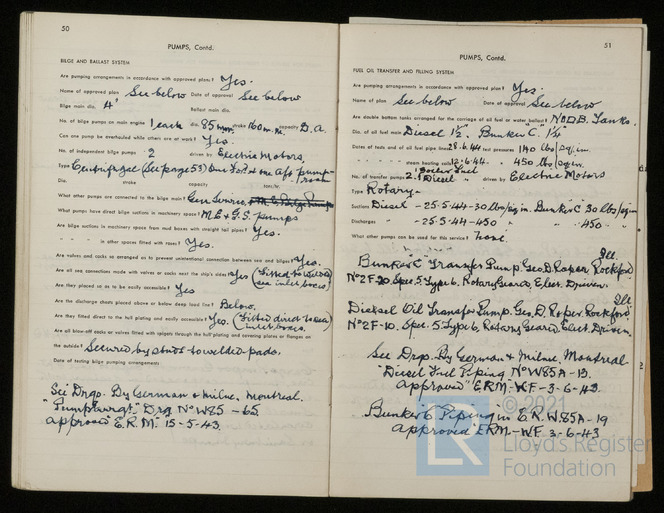 50
PUMPS, Contd.
BILGE AND BALLAST SYSTEM
Are pumping arrangements in accordance with approved plans? Yes.
Name of approved plan See below Date of approval See below
Bilge main dia. 4" Ballast main dia.
No. of bilge pumps on main engine 1 each dia. 85 mm. stroke 160 m.m. capacity D.A.
Can one pump be overhauled while others are at work? Yes.
No. of independent bilge pumps 2 driven by Electric Motors.
Type Centrifugal (See page 53) One For'd & one Aft. pump-room
Dia. stroke capacity tons/hr.
What other pumps are connected to the bilge main? Gen. Service
What pumps have direct bilge suctions in machinery space? M.E & G.S. pumps
Are bilge suctions in machinery space from mud boxes with straight tail pipes? Yes.
" " " in other spaces fitted with roses? Yes.
Are valves and cocks so arranged as to prevent unintentional connection between sea and bilges? Yes.
Are all sea connections made with valves or cocks near the ship's sides? Yes (Fitted to welded sea inlet boxes)
Are they placed so as to be easily accessible? Yes
Are the discharge chests placed above or below deep load line? Below.
Are they fitted direct to the hull plating and easily accessible? Yes. (Fitted direct to sea inlet boxes.
Are all blow-off cocks or valves fitted with spigots through the hull plating and covering plates or flanges on
the outside? Secured by studs to welded pads.
Date of testing bilge pumping arrangements
See Drgs. By German & Milne, Montreal.
"Pump arrgt." Drg No W85 - 65
approved "E.R.M." 15-5-43.
51
PUMPS, Contd.
FUEL OIL TRANSFER AND FILLING SYSTEM
Are pumping arrangements in accordance with approved plans? Yes.
Name of plan See below Date of approval See below
Are double bottom tanks arranged for the carriage of oil fuel or water ballast? No D.B. Tanks.
Dia. of oil fuel main Diesel 1½". Bunker "C"
Dates of tests and of oil fuel pipe lines 28-6-44 test pressures 140 lbs/sq.in.
" " " steam heating coils 12-6-44. " 450 lbs/sq.in.
No. of transfer pumps 2. 1 Boiler Fuel 1 Diesel driven by Electric Motors
Type Rotary
Suctions Diesel - 25-5-44 - 30 lbs/sq in. Bunker C 30 lbs/sq in
Discharges " - 25-5-44 - 450 " " 450 "
What other pumps can be used for this service? None.
Bunker "C" Transfer Pump. Geo. D. Roper. Rockford Ill.
No 2F-20. Spec. 5. Type 6. Rotary Geared, Elect. Driven.
Diesel Oil Transfer Pump. Geo. D. Roper. Rockford Ill
No 2F-10. Spec. 5. Type 6, Rotary Geared Elect. Driven.
See Drgs. By German & Milne, Montreal
"Diesel Fuel Piping No W85A-13.
Approved" E.R.M.-W.F-3-6-43.
Bunker C Piping in E.R. W.85A-19
approved E.R.M-W F 3-6-43
© 2021
LR Lloyd's Register
Foundation